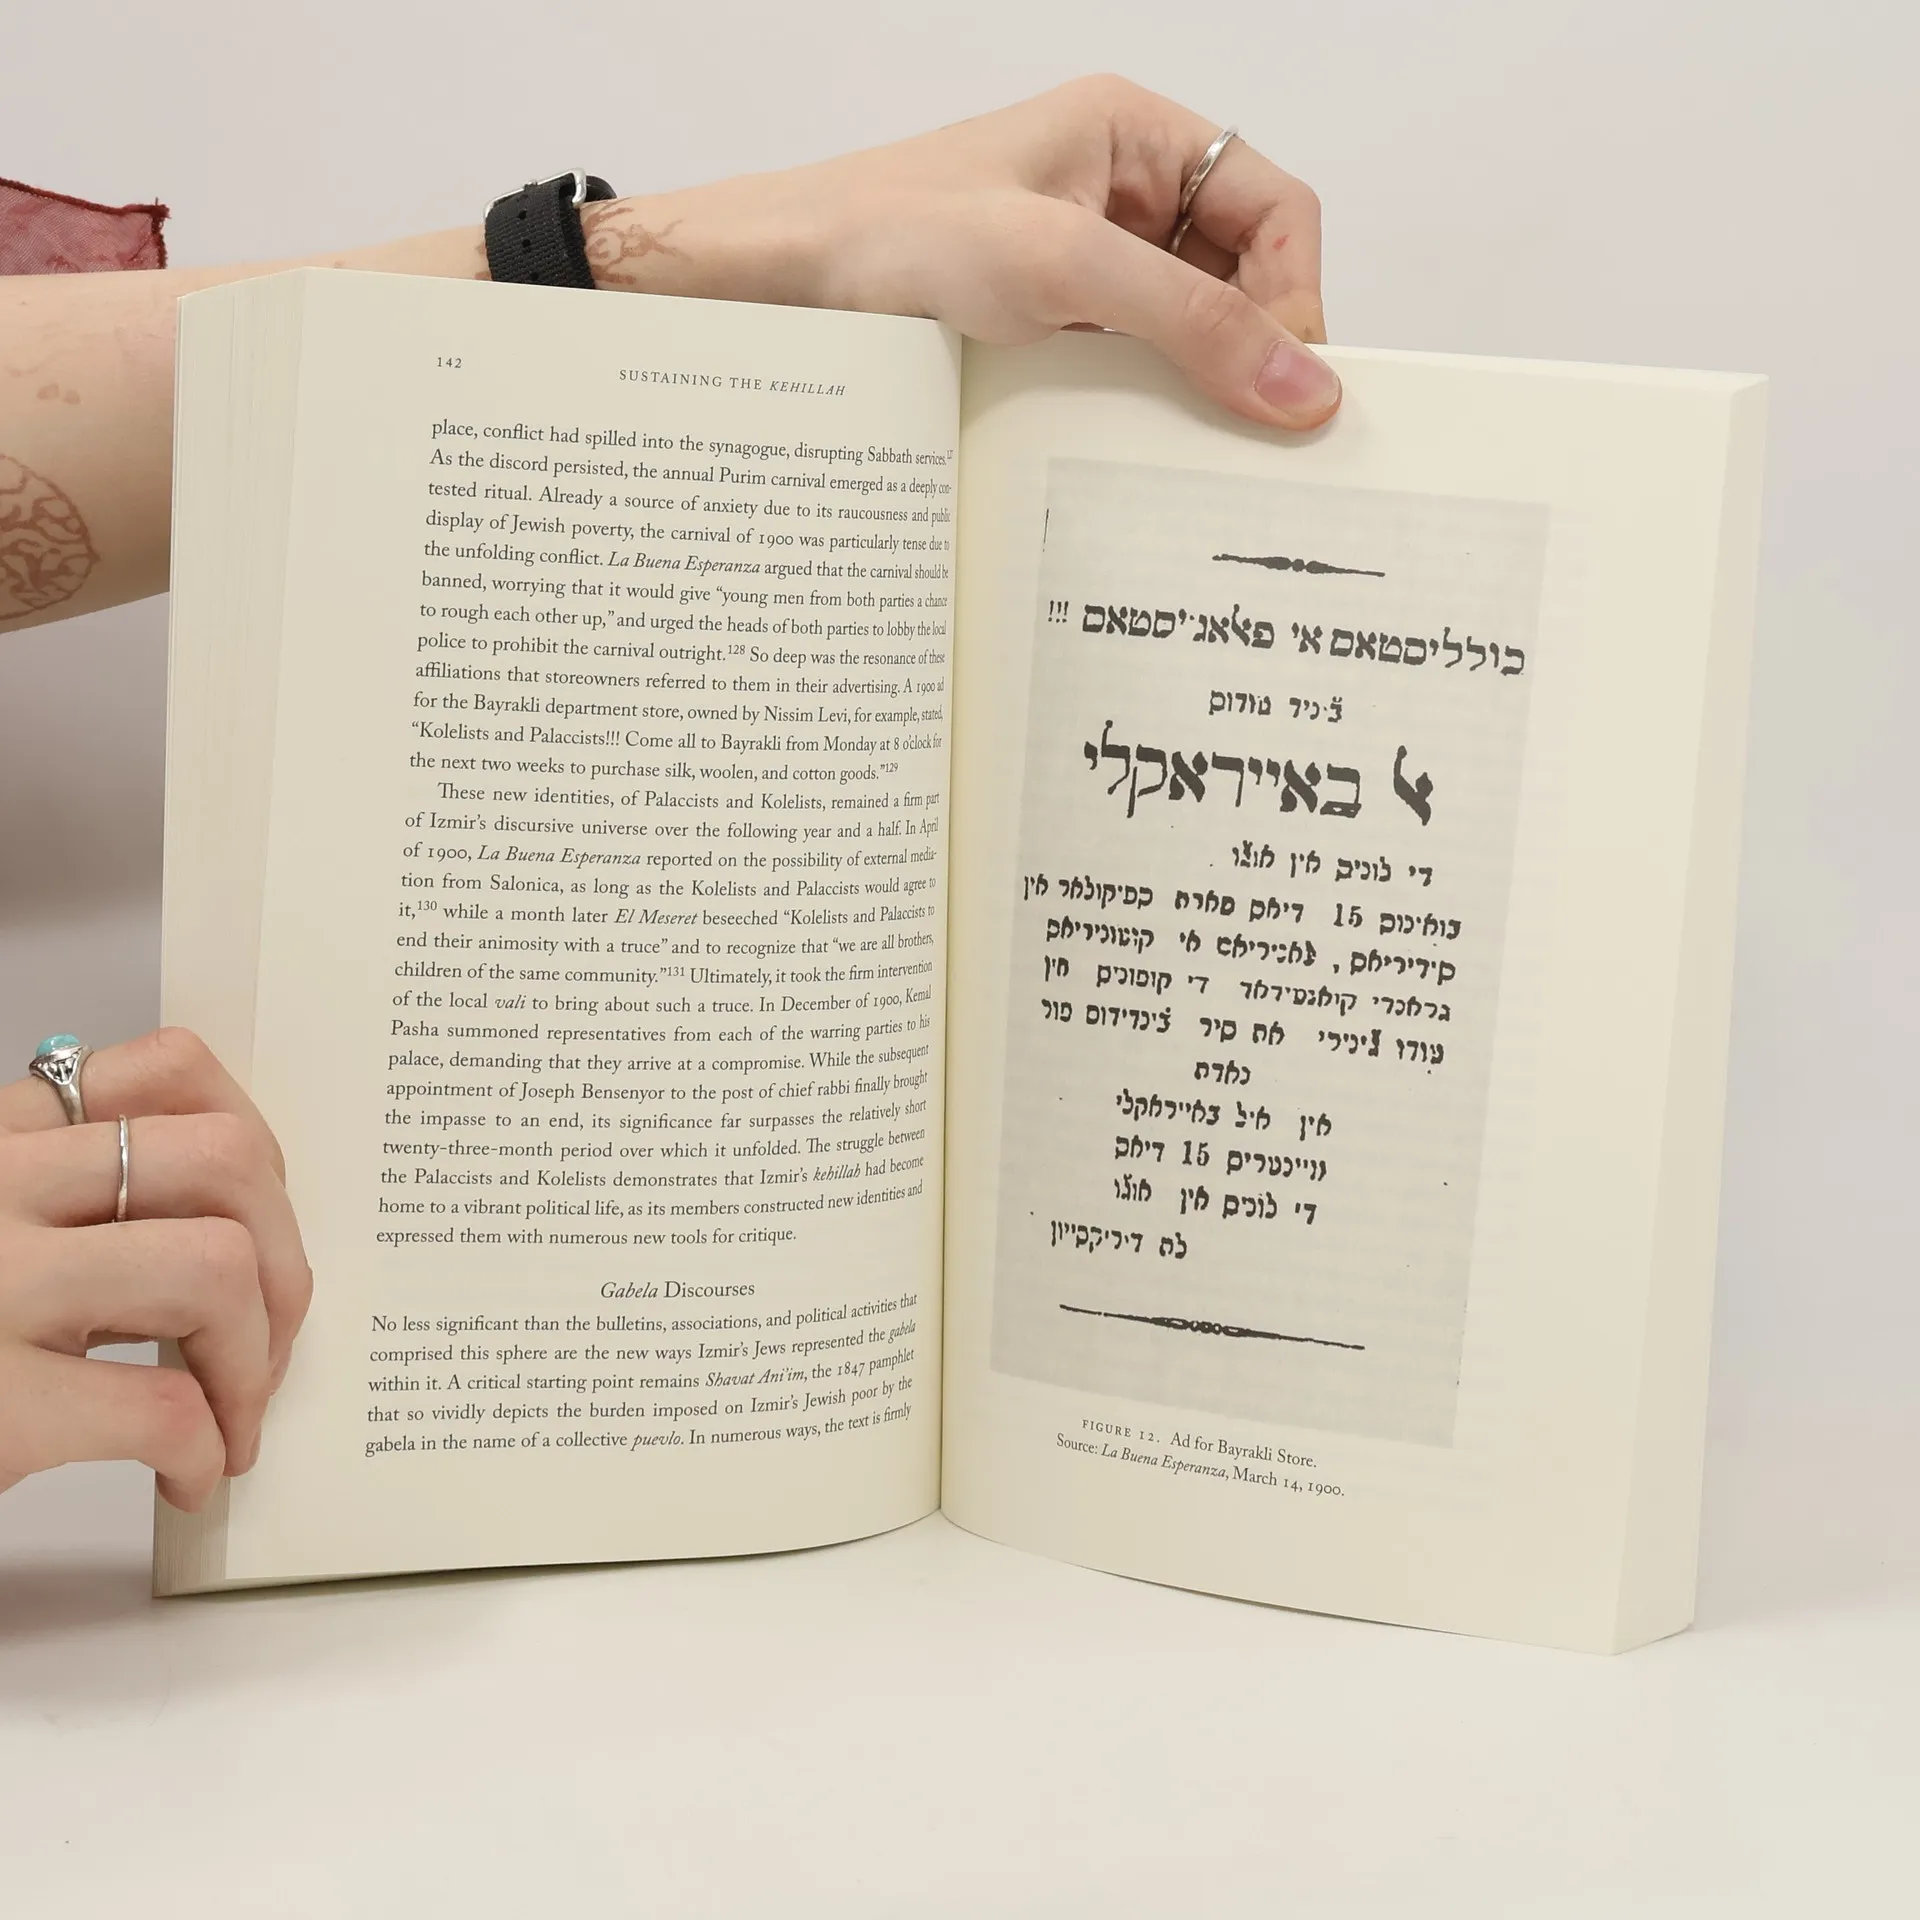 142
SUSTAINING THE KEHILLAH
place, conflict had spilled into the synagogue, disrupting Sabbath services.¹²⁷
As the discord persisted, the annual Purim carnival emerged as a deeply con-
tested ritual. Already a source of anxiety due to its raucousness and public
display of Jewish poverty, the carnival of 1900 was particularly tense due to
the unfolding conflict. La Buena Esperanza argued that the carnival should be
banned, worrying that it would give “young men from both parties a chance
to rough each other up,” and urged the heads of both parties to lobby the local
police to prohibit the carnival outright.¹²⁸ So deep was the resonance of these
affiliations that storeowners referred to them in their advertising. A 1900 ad
for the Bayrakli department store, owned by Nissim Levi, for example, stated,
“Kolelists and Palaccists!!! Come all to Bayrakli from Monday at 8 o’clock for
the next two weeks to purchase silk, woolen, and cotton goods.”¹²⁹
These new identities, of Palaccists and Kolelists, remained a firm part
of Izmir’s discursive universe over the following year and a half. In April
of 1900, La Buena Esperanza reported on the possibility of external media-
tion from Salonica, as long as the Kolelists and Palaccists would agree to
it,¹³⁰ while a month later El Meseret beseeched “Kolelists and Palaccists to
end their animosity with a truce” and to recognize that “we are all brothers,
children of the same community.”¹³¹ Ultimately, it took the firm intervention
of the local vali to bring about such a truce. In December of 1900, Kemal
Pasha summoned representatives from each of the warring parties to his
palace, demanding that they arrive at a compromise. While the subsequent
appointment of Joseph Bensenyor to the post of chief rabbi finally brought
the impasse to an end, its significance far surpasses the relatively short
twenty-three-month period over which it unfolded. The struggle between
the Palaccists and Kolelists demonstrates that Izmir’s kehillah had become
home to a vibrant political life, as its members constructed new identities and
expressed them with numerous new tools for critique.
Gabela Discourses
No less significant than the bulletins, associations, and political activities that
comprised this sphere are the new ways Izmir’s Jews represented the gabela
within it. A critical starting point remains Shavat Ani’im, the 1847 pamphlet
that so vividly depicts the burden imposed on Izmir’s Jewish poor by the
gabela in the name of a collective puevlo. In numerous ways, the text is firmly
כולליסטאס אי פאלאג'יסטאס !!!
ב'ניד טודוס
באייראקלי
די לוניס אין אוג'ו
15 דיאס פארה
סידיריאס, לאניריאס אי
די קופוניס אין
טודו ג'יניר'י
אין איל באייראקלי
15 דיאס
די לוניס אין אוג'ו
לה דיריקסייון
FIGURE 12. Ad for Bayrakli Store.
Source: La Buena Esperanza, March 14, 1900.